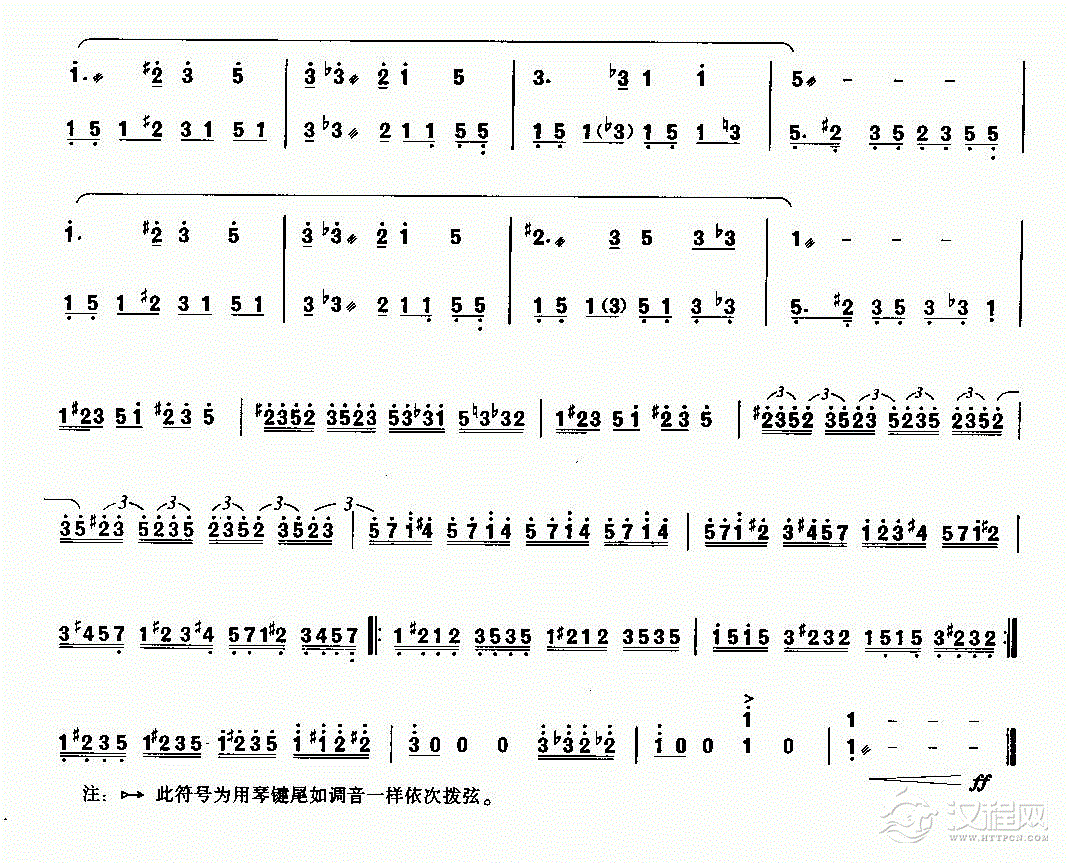 1. ♯2 3 5 | 3 ♭3 2 1 5 | 3. ♭3 1 1 | 5 - - - |
1 5 1 ♯2 3 1 5 1 | 3 ♭3 2 1 1 5 5 | 1 5 1 (♭3) 1 5 1 ♮3 | 5. ♯2 3 5 2 3 5 5 |
1. ♯2 3 5 | 3 ♭3 2 1 5 | ♯2. 3 5 3 ♭3 | 1 - - - |
1 5 1 ♯2 3 1 5 1 | 3 ♭3 2 1 1 5 5 | 1 5 1 (3) 5 1 3 ♭3 | 5. ♯2 3 5 3 ♭3 1 |
1♯23 51 ♯23 5 | ♯2352 3523 53♭31 5♮3♭32 | 1♯23 51 ♯23 5 | ♯2352 3523 5235 2352 |
35♯23 5235 2352 3523 | 571♯4 5714 5714 5714 | 571♯2 3♯457 123♯4 571♯2 |
3♯457 1♯23♯4 571♯2 3457 ‖: 1♯212 3535 1♯212 3535 | 1515 3♯232 1515 3♯232 :‖
1♯235 1♯235 1♯235 1♯12♯2 | 3 0 0 0 3♭32♭2 | 1 0 0 1 0 | 1 - - - ‖
1 1 - - -
ff
注: 此符号为用琴键尾如调音一样依次拨弦。
汉程网
WWW.HTTPCN.COM